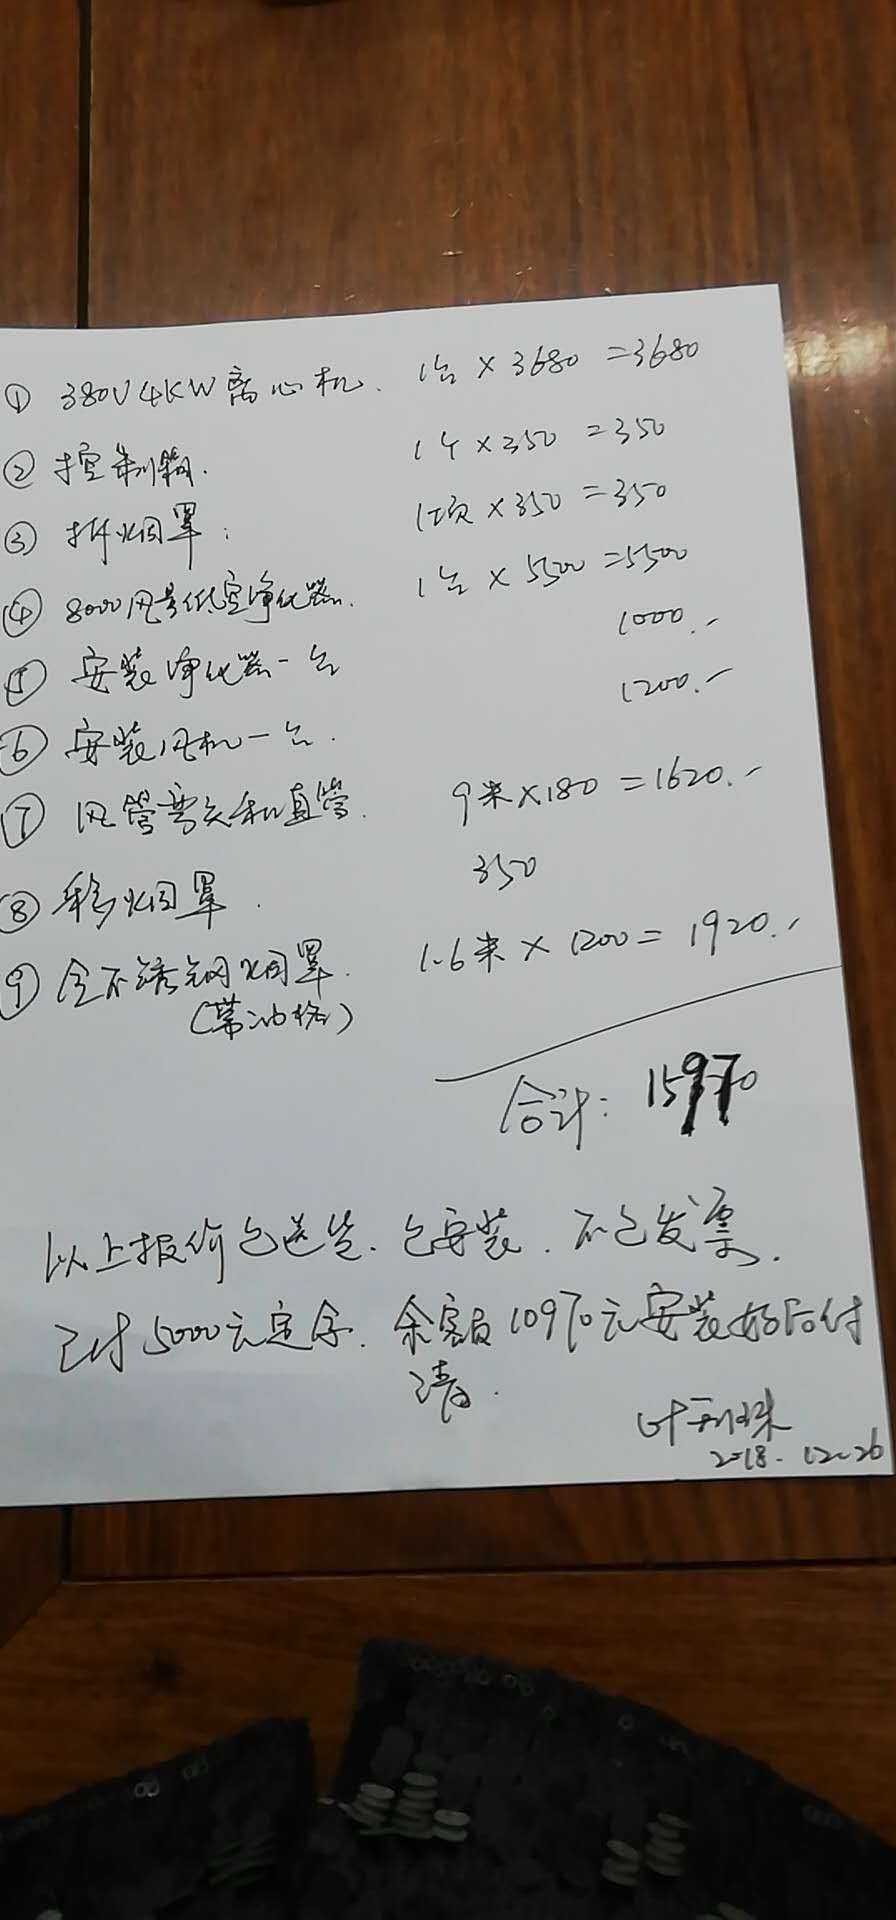 ① 380V4KW离心机. 1台×3680=3680
② 控制箱. 1个×350=350
③ 拆烟罩: 1项×350=350
④ 8000风量低空净化器. 1台×5500=5500
⑤ 安装净化器一台 1000.-
⑥ 安装风机一台. 1200.-
⑦ 风管弯头和直管. 9米×180=1620.-
⑧ 移烟罩. 350
⑨ 全不锈钢烟罩. 1.6米×1200=1920.-
(带油格)
合计: 15970
以上报价包送货.包安装.不包发票.
已付5000元定金.余额10970元安装好后付
清.
叶
2018.12.26